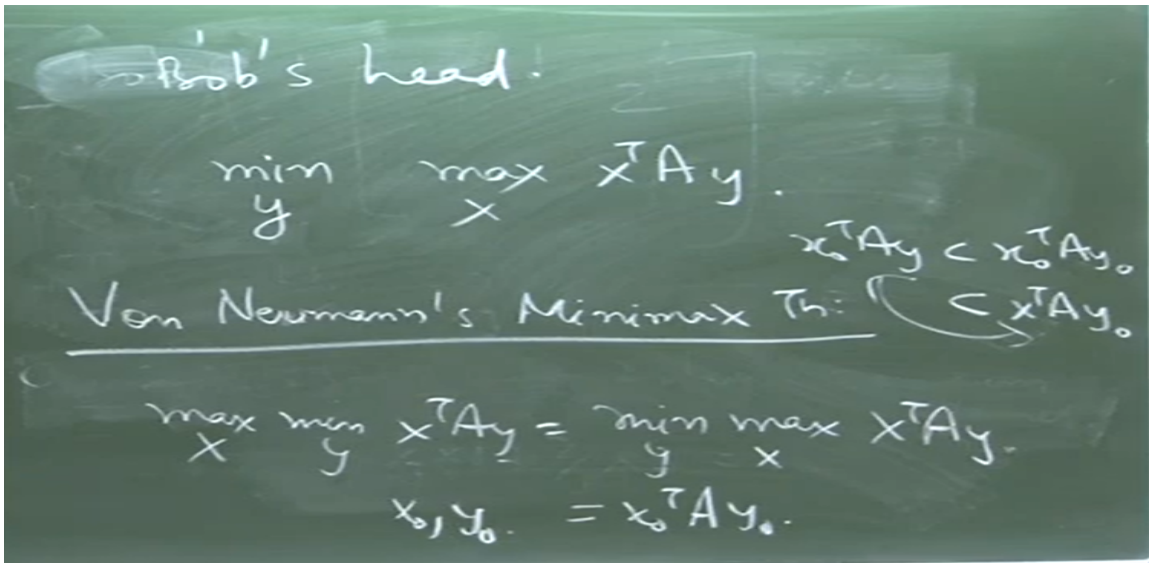 Bob's head.
min max xᵀAy.
y x
x₀ᵀAy < x₀ᵀAy₀
< xᵀAy₀
Von Neumann's Minimax Th:
max min xᵀAy = min max xᵀAy.
x y y x
x₀, y₀. = x₀ᵀAy₀.